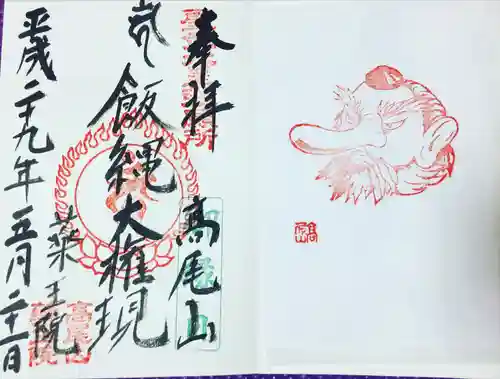 奉拝
高尾山
飯縄大権現
薬王院
平成二十九年五月二十一日